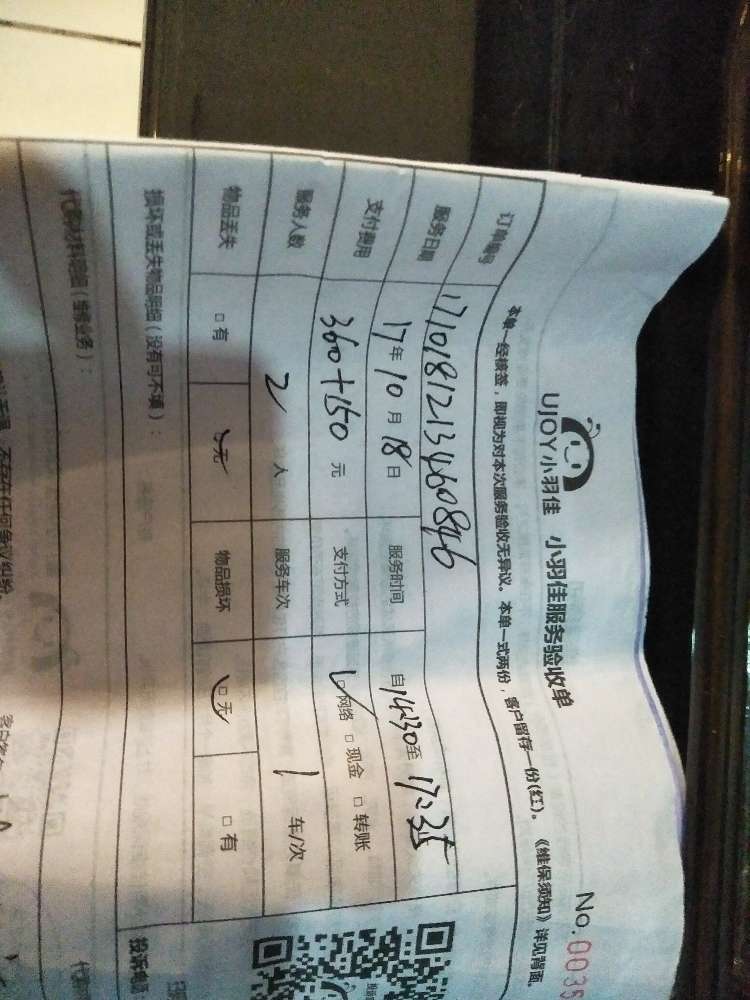 UJOY小羽佳 小羽佳服务验收单 No. 0035
本单一经核签，即视为对本次服务验收无异议。本单一式两份，客户留存一份(红)。《维保须知》详见背面。
订单编号 1710181213460846
服务日期 17年10月18日 服务时间 自14:30至17:35
支付费用 360+150元 支付方式 ☑网络 □现金 □转账
服务人数 2人 服务车次 1车/次
物品丢失 □有 ☑无 物品损坏 ☑无 □有
损坏或丢失物品明细（没有可不填）：
投诉电话
代购材料明细（维修业务）：
不存在任何争议纠纷。